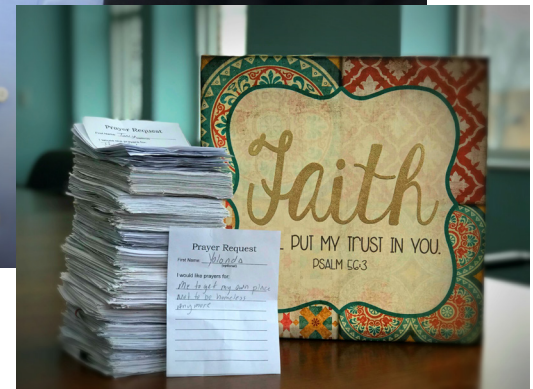 Prayer Request
First Name
Faith
PUT MY TRUST IN YOU.
PSALM 56:3
Prayer Request
First Name Yolanda
I would like prayers for:
Me to get my own place
not to be homeless
anymore